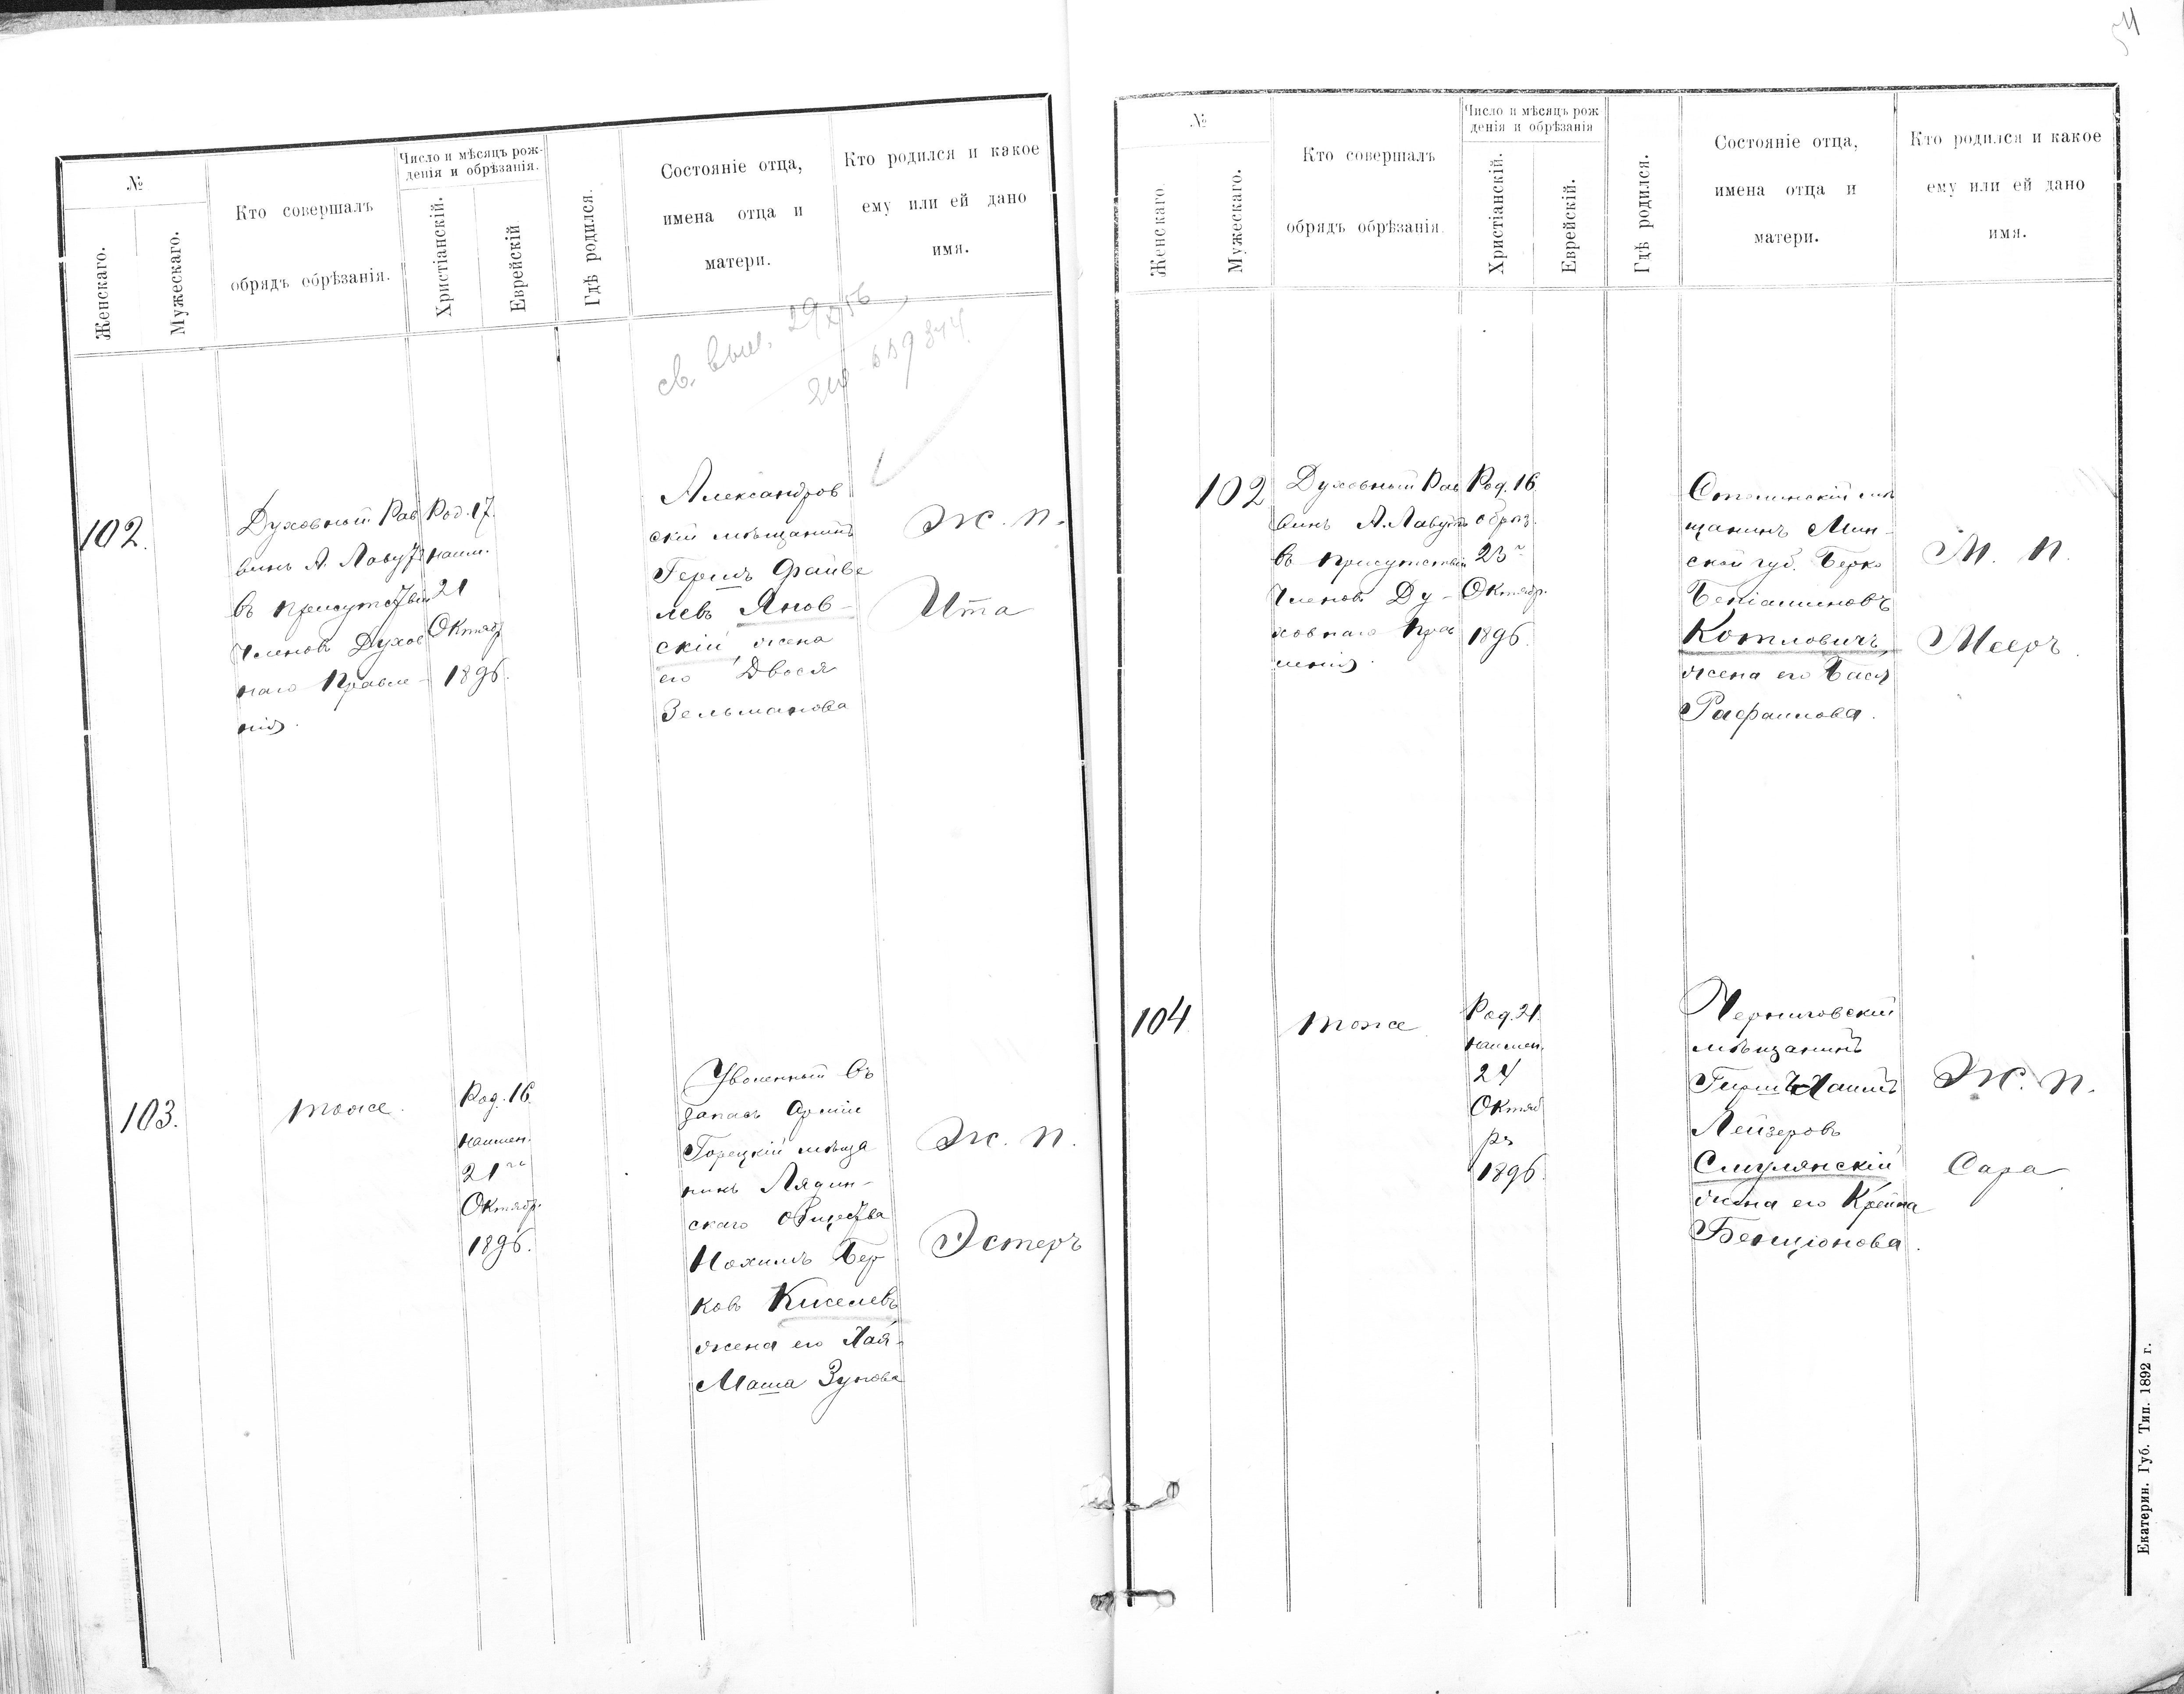 №
Женскаго.
Мужескаго.
Кто совершалъ
обрядъ обрѣзанія.
Число и мѣсяцъ рож-
денія и обрѣзанія.
Христіанскій.
Еврейскій
Гдѣ родился.
Состояніе отца,
имена отца и
матери.
Кто родился и какое
ему или ей дано
имя.
св. выд. 29/X 56
102.
Духовный Рав
винъ А. Лавутъ
въ присутствіи
Членовъ Духов
наго Правле-
нія.
Род. 17.
наим.
21
Октяб
1896.
Александров
скій мѣщанинъ
Гершъ Файве
левъ Янов-
скій, жена
его Двося
Зельманова
Ж. п.
Ита
103.
тоже.
Род. 16.
наимен.
21го
Октябр.
1896.
Уволенный въ
запасъ Арміи
Горецкій мѣща
нинъ Лядин-
скаго Общества
Нохимъ Бер
ковъ Киселевъ,
жена его Хая-
Маша Зунова
Ж. п.
Эстеръ
54
№
Женскаго.
Мужескаго.
Кто совершалъ
обрядъ обрѣзанія.
Число и мѣсяцъ рож
денія и обрѣзанія
Христіанскій.
Еврейскій.
Гдѣ родился.
Состояніе отца,
имена отца и
матери.
Кто родился и какое
ему или ей дано
имя.
102
Духовный Рав
винъ А. Лавутъ
въ присутствіи
Членовъ Ду-
ховнаго Прав
ленія.
Род. 16.
обрѣз.
23
Октябр.
1896.
Столинскій мѣ
щанинъ Мин-
ской губ. Берко
Беніаминовъ
Котловичъ,
жена его Бася
Рафаилова.
М. п.
Мееръ.
104
тоже
Род. 21.
наимен.
24
Октяб
ря
1896.
Черниговскій
мѣщанинъ
Гиршъ-Хаимъ
Лейзеровъ
Смулянскій
жена его Крейна
Бенціонова.
Ж. п.
Сара
Екатерин. Губ. Тип. 1892 г.